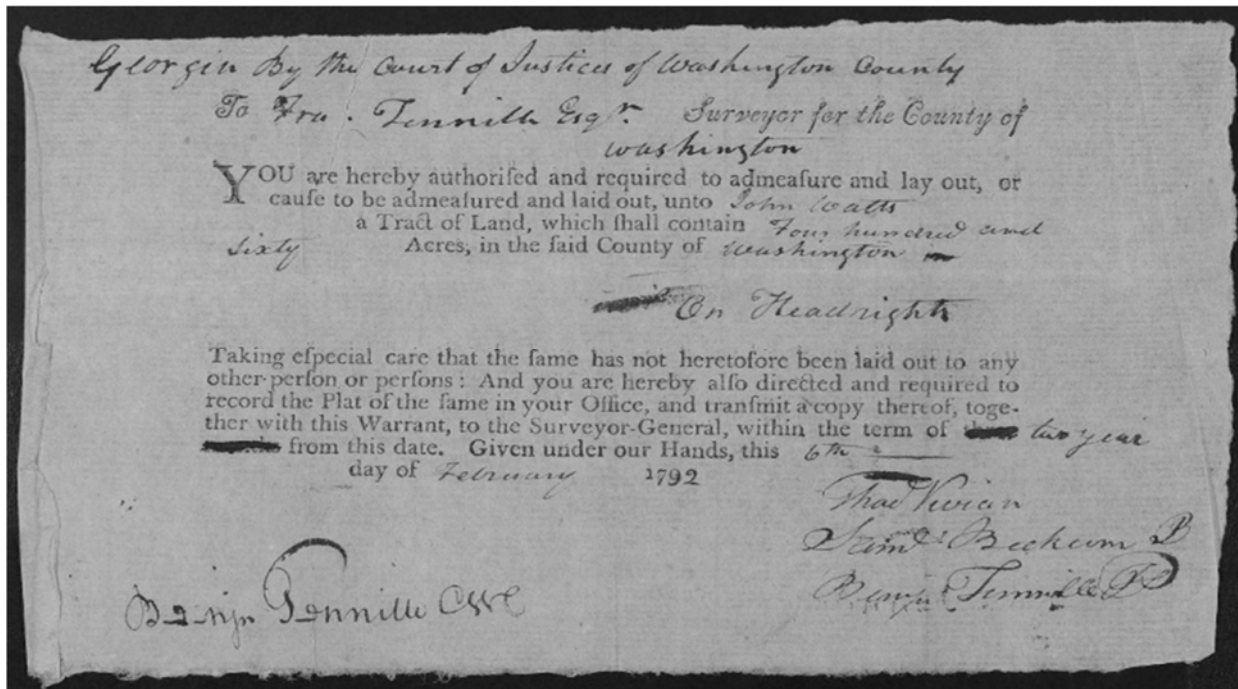 Georgia By the Court of Justices of Washington County
To Fra. Tennille Esqr. Surveyor for the County of
Washington
YOU are hereby authoriſed and required to admeaſure and lay out, or
cauſe to be admeaſured and laid out, unto John Watts
a Tract of Land, which ſhall contain Four hundred and
Sixty Acres, in the ſaid County of Washington
On Headrights
Taking eſpecial care that the ſame has not heretofore been laid out to any
other perſon or perſons: And you are hereby alſo directed and required to
record the Plat of the ſame in your Office, and tranſmit a copy thereof, toge-
ther with this Warrant, to the Surveyor-General, within the term of two year
from this date. Given under our Hands, this 6th
day of February 1792
Thad Vivian
Saml: Beckcom
Benjn Tennille
Benjn Tennille CWC